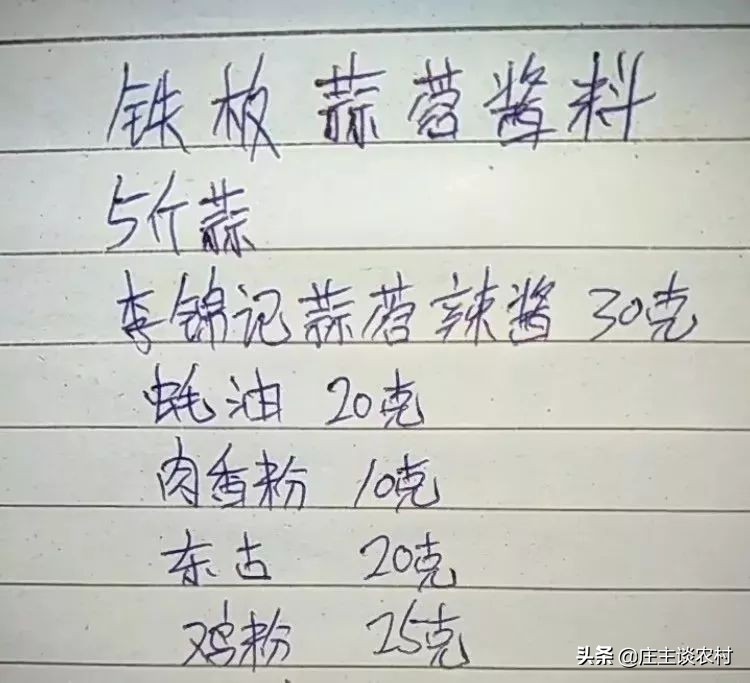 铁板蒜蓉酱料
5个蒜
李锦记蒜蓉辣酱 30克
蚝油 20克
肉香粉 10克
东古 20克
鸡粉 25克
头条 @庄主谈农村